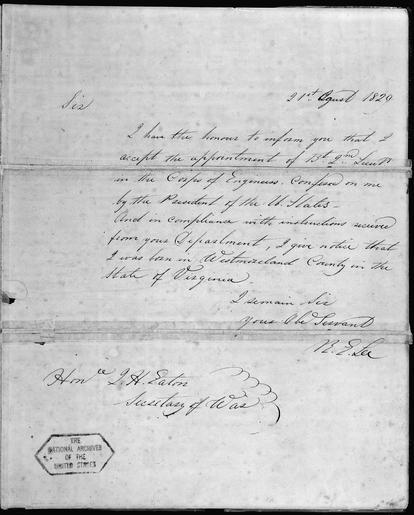 21st Agust 1829
Sir
I have the honour to inform you that I
accept the appointment of Bt 2nd Lieut
in the Corps of Engineers. Confered on me
by the President of the U. States—
And in compliance with instructions receive
from your Department, I give notice that
I was born in Westmoreland County in the
State of Virginia
I remain Sir
Your Obt Servant
R. E. Lee
Honble J. H. Eaton
Secretary of War
THE
NATIONAL ARCHIVES
OF THE
UNITED STATES